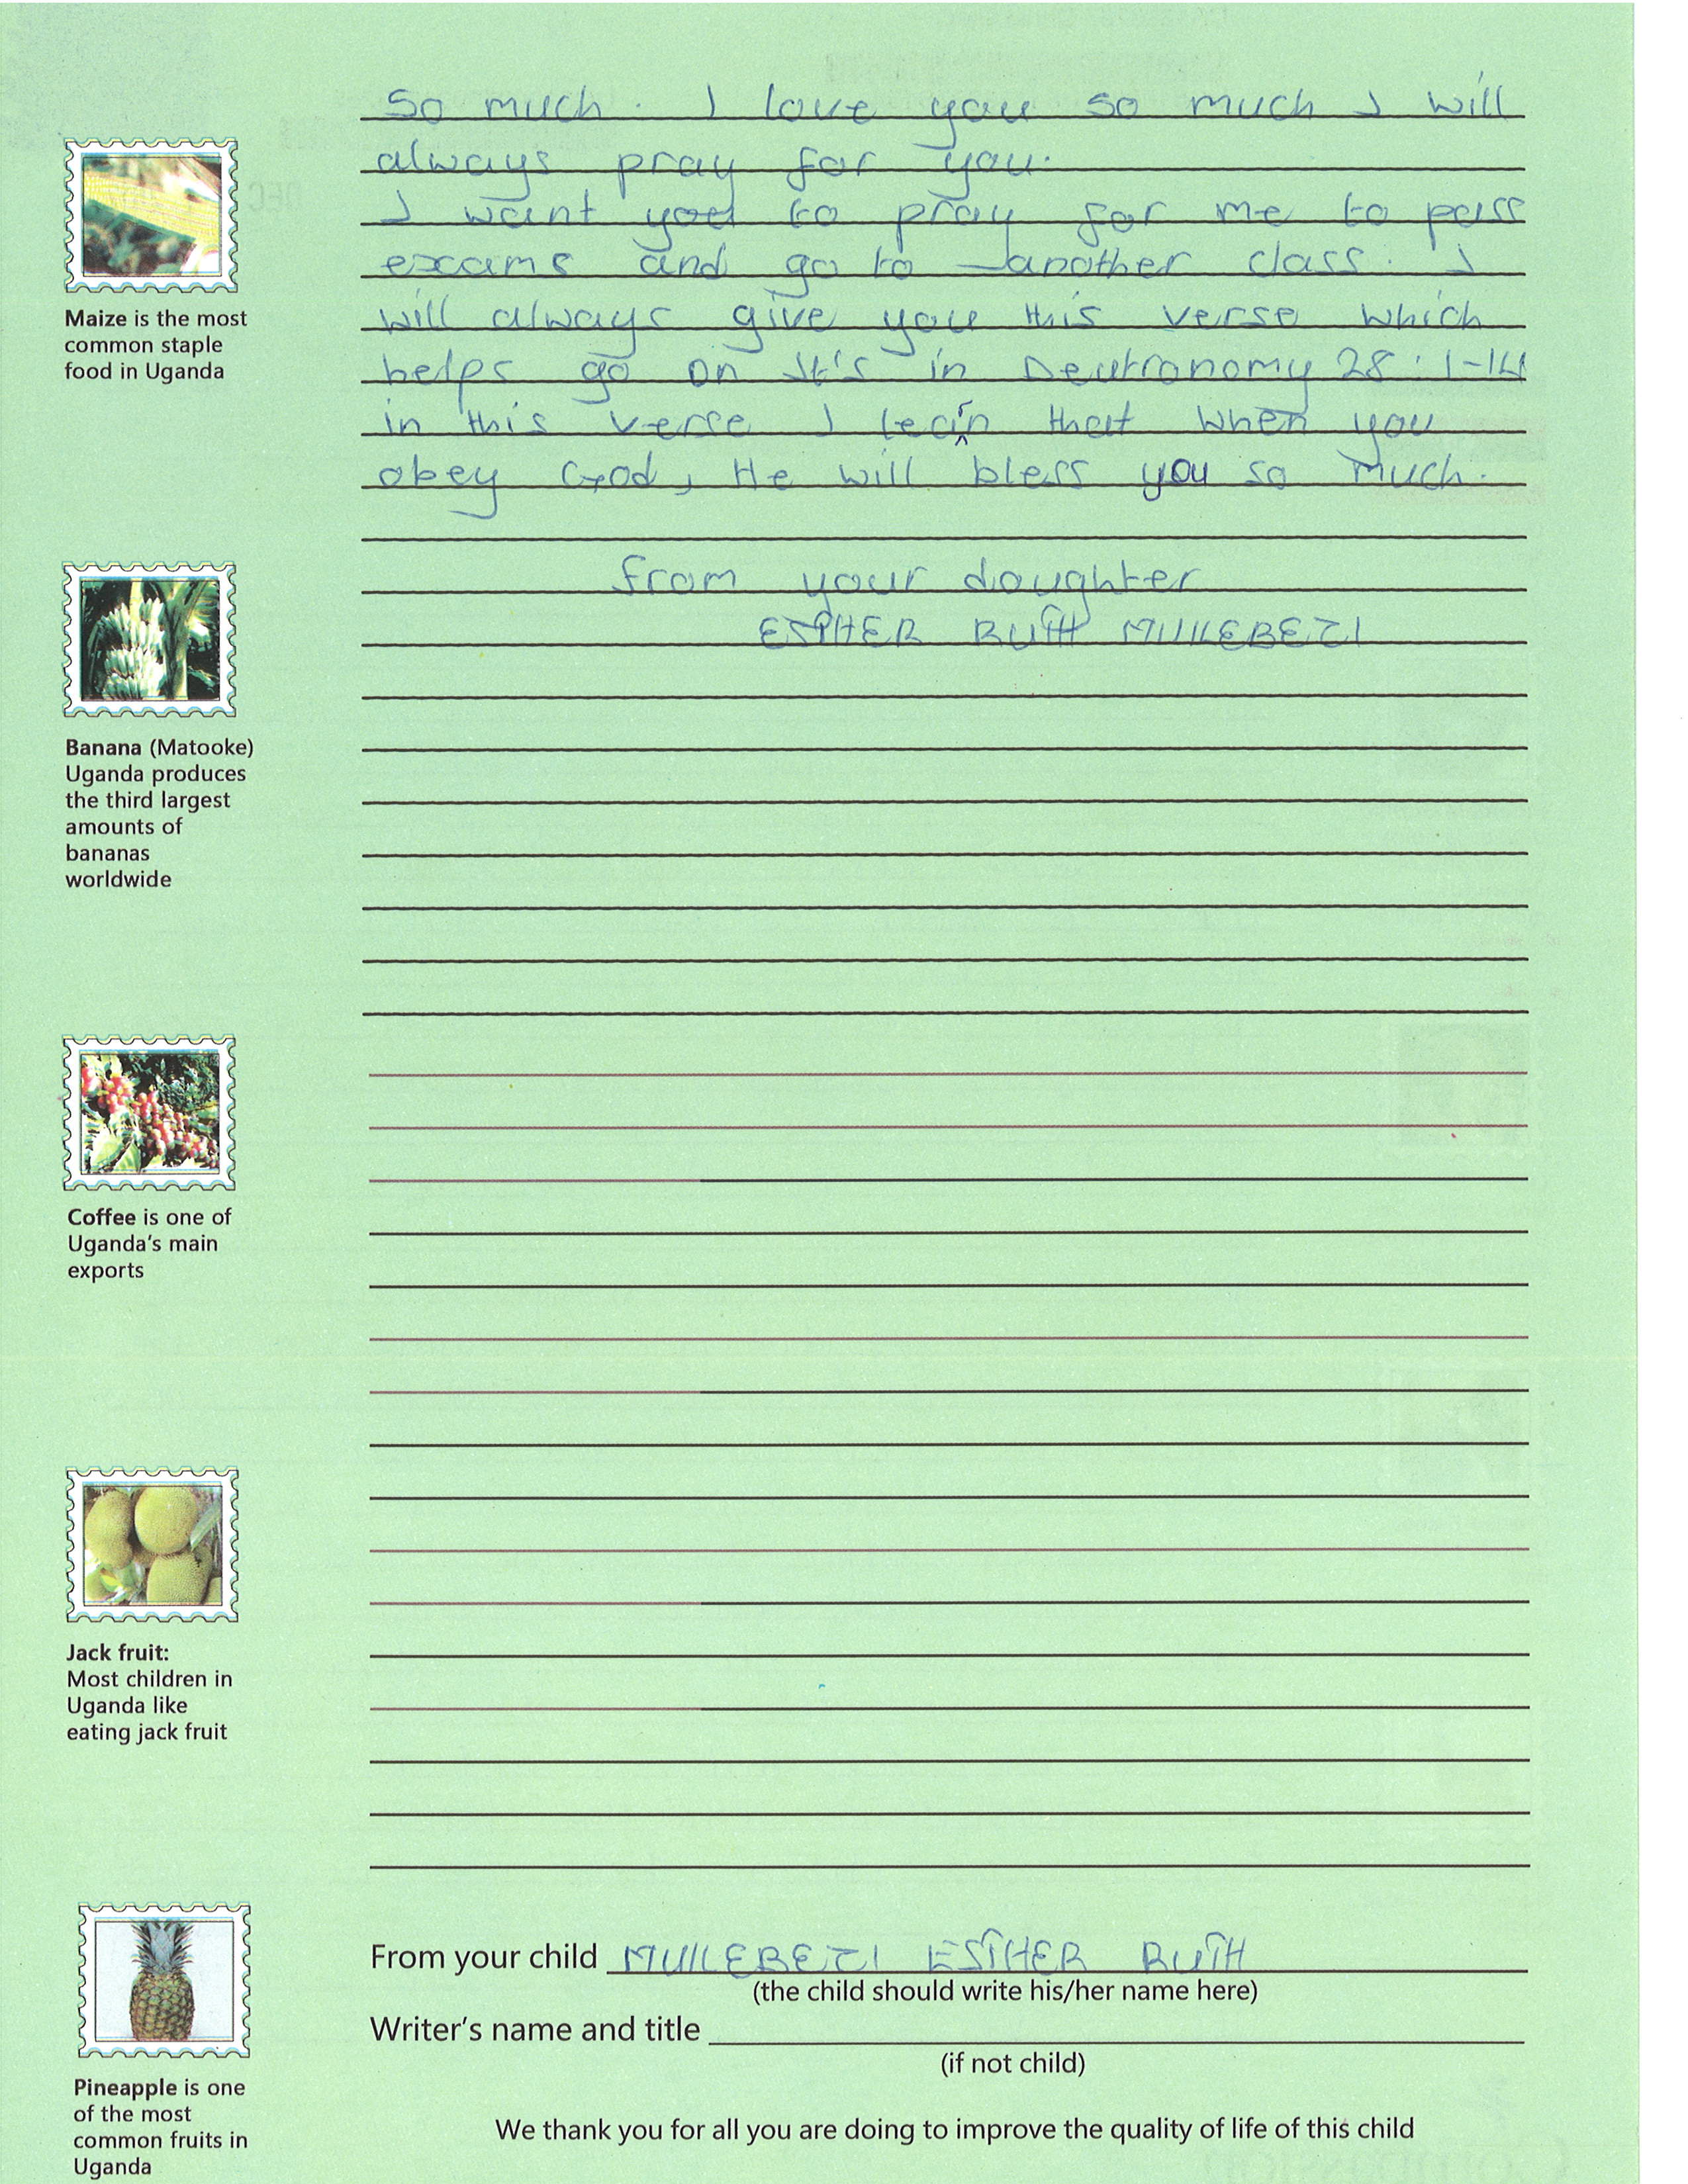 So much. I love you so much I will
always pray for you.
I want you to pray for me to pass
exams and go to another class. I
will always give you this verse which
helps go on It's in Deutronomy 28:1-14
in this verse I learn that when you
obey God, He will bless you so much.
from your doughter
ESTHER RUTH MUKEBEZI
Maize is the most
common staple
food in Uganda
Banana (Matooke)
Uganda produces
the third largest
amounts of
bananas
worldwide
Coffee is one of
Uganda's main
exports
Jack fruit:
Most children in
Uganda like
eating jack fruit
Pineapple is one
of the most
common fruits in
Uganda
From your child MUKEBEZI ESTHER RUTH
(the child should write his/her name here)
Writer's name and title
(if not child)
We thank you for all you are doing to improve the quality of life of this child